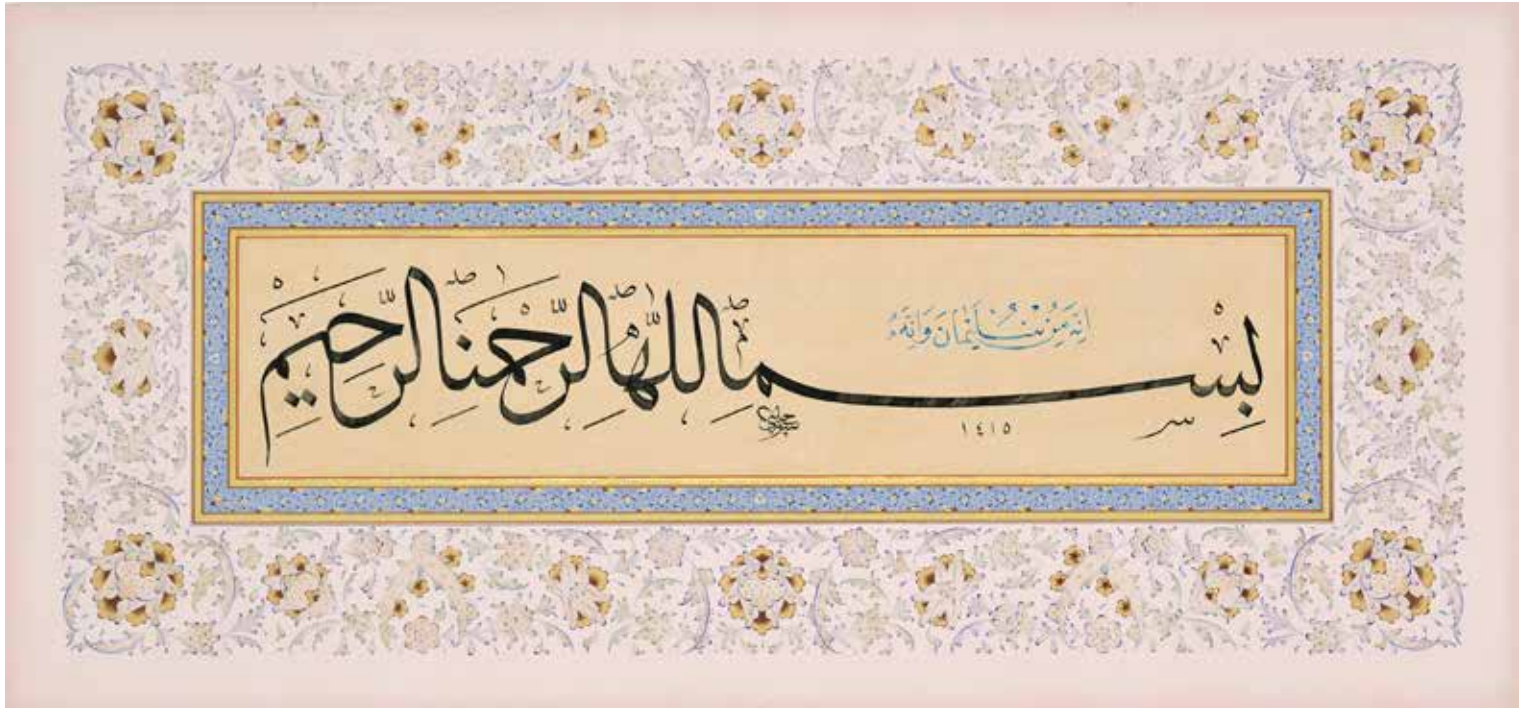 إِنَّهُ مِنْ سُلَيْمَانَ وَإِنَّهُ
بِسْمِ اللَّهِ الرَّحْمَنِ الرَّحِيمِ
١٤١٥